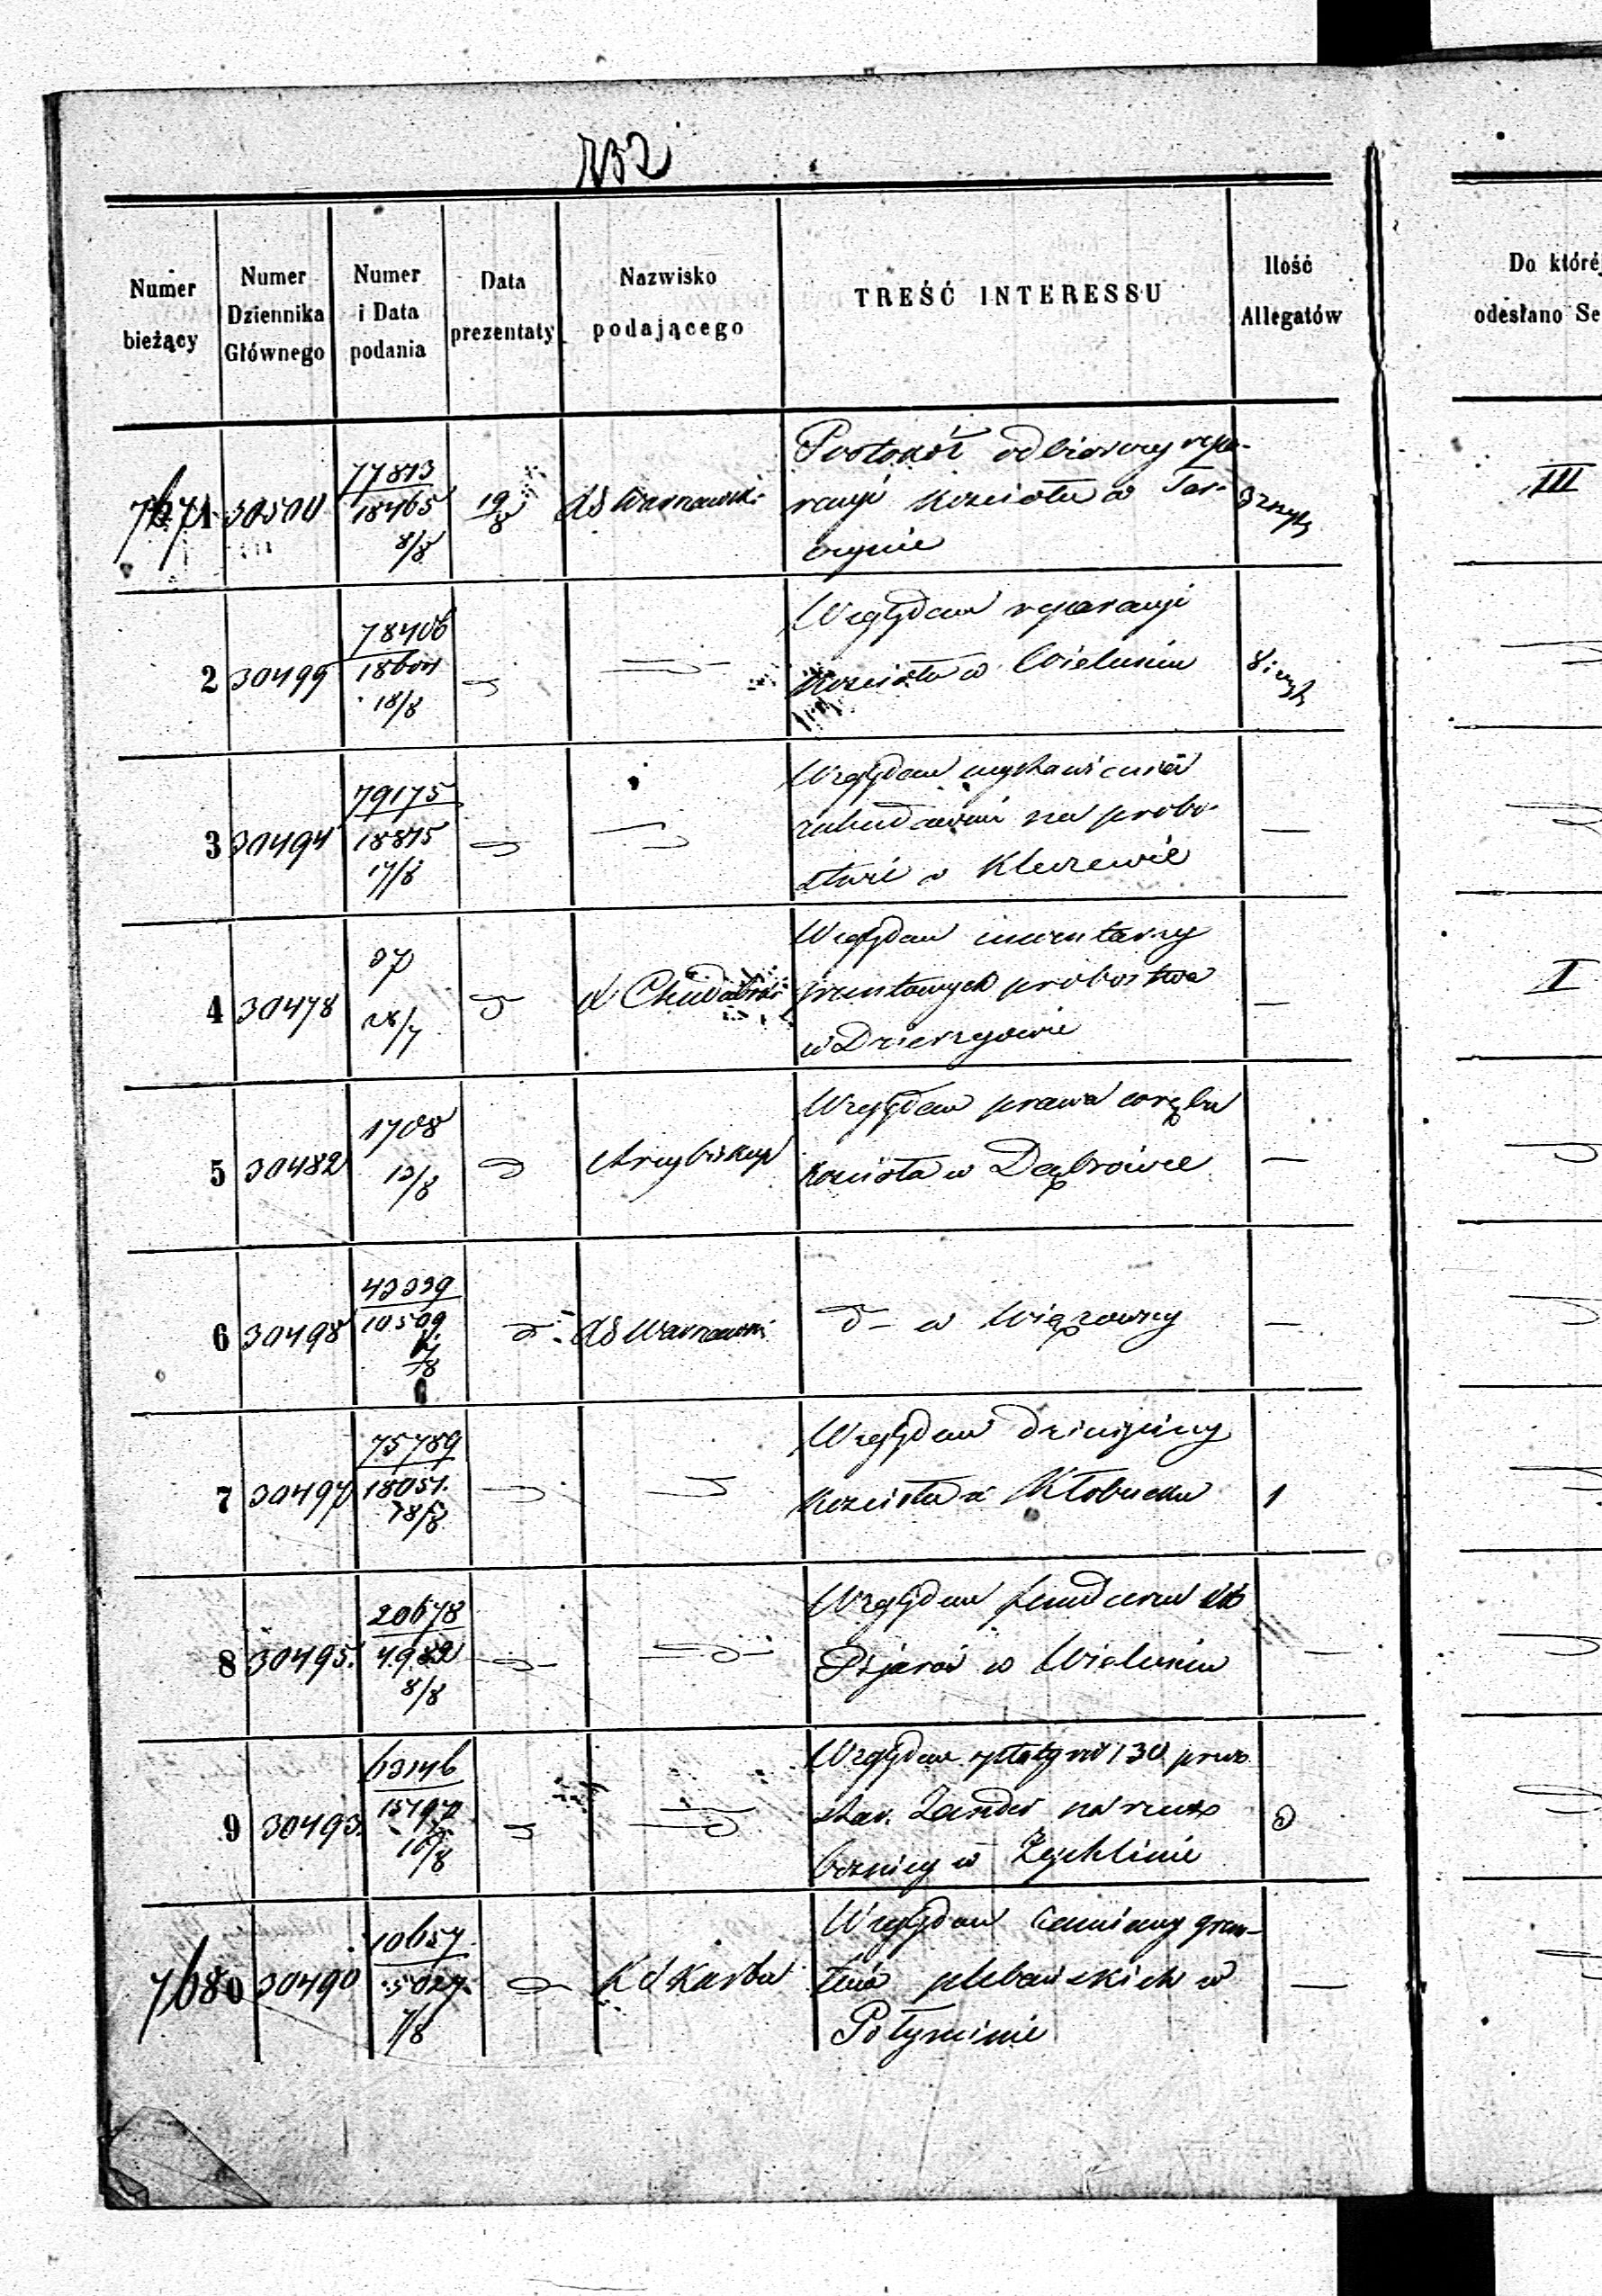 732
Numer bieżący
Numer Dziennika Głównego
Numer i Data podania
Data prezentaty
Nazwisko podającego
TREŚĆ INTERESSU
Ilość Allegatów
Do któréj
odesłano Se
7671 30500 77813 18465 8/8 19/8
Protokół odbiorczy repa-
racyi kościoła w Tar-
czynie
III
2 30499 78406 18/8
Względem reparacyi
kościoła w Wieluniu
3 30494 79175 18815 17/8
Względem wystawienia
zabudowań na probo-
stwie w Kluczewie
—
4 30478 37 28/7
Względem inwentarzy
gruntowych probostwa
w Dzierzgowie
—
II
5 30482 1708 13/8 Arcybiskup
Względem prawa wrębu
kościoła w Dąbrówce
—
6 30498 43339 10509
do — w Wiązowny
—
7 30497 75789 18051 18/8
Względem dziesięciny
kościoła w Kłobucku
1
8 30495. 20678 4982 8/8
Względem funduszu XX
Pijarów w Wieluniu
—
9 30493. 63146 16/8
Względem wpłaty rs 130 przez
star. Zander na rzecz
bożnicy w Żychlinie
7680 30490 10657 5027 7/8
Względem zamiany grun-
tów plebańskich w
—